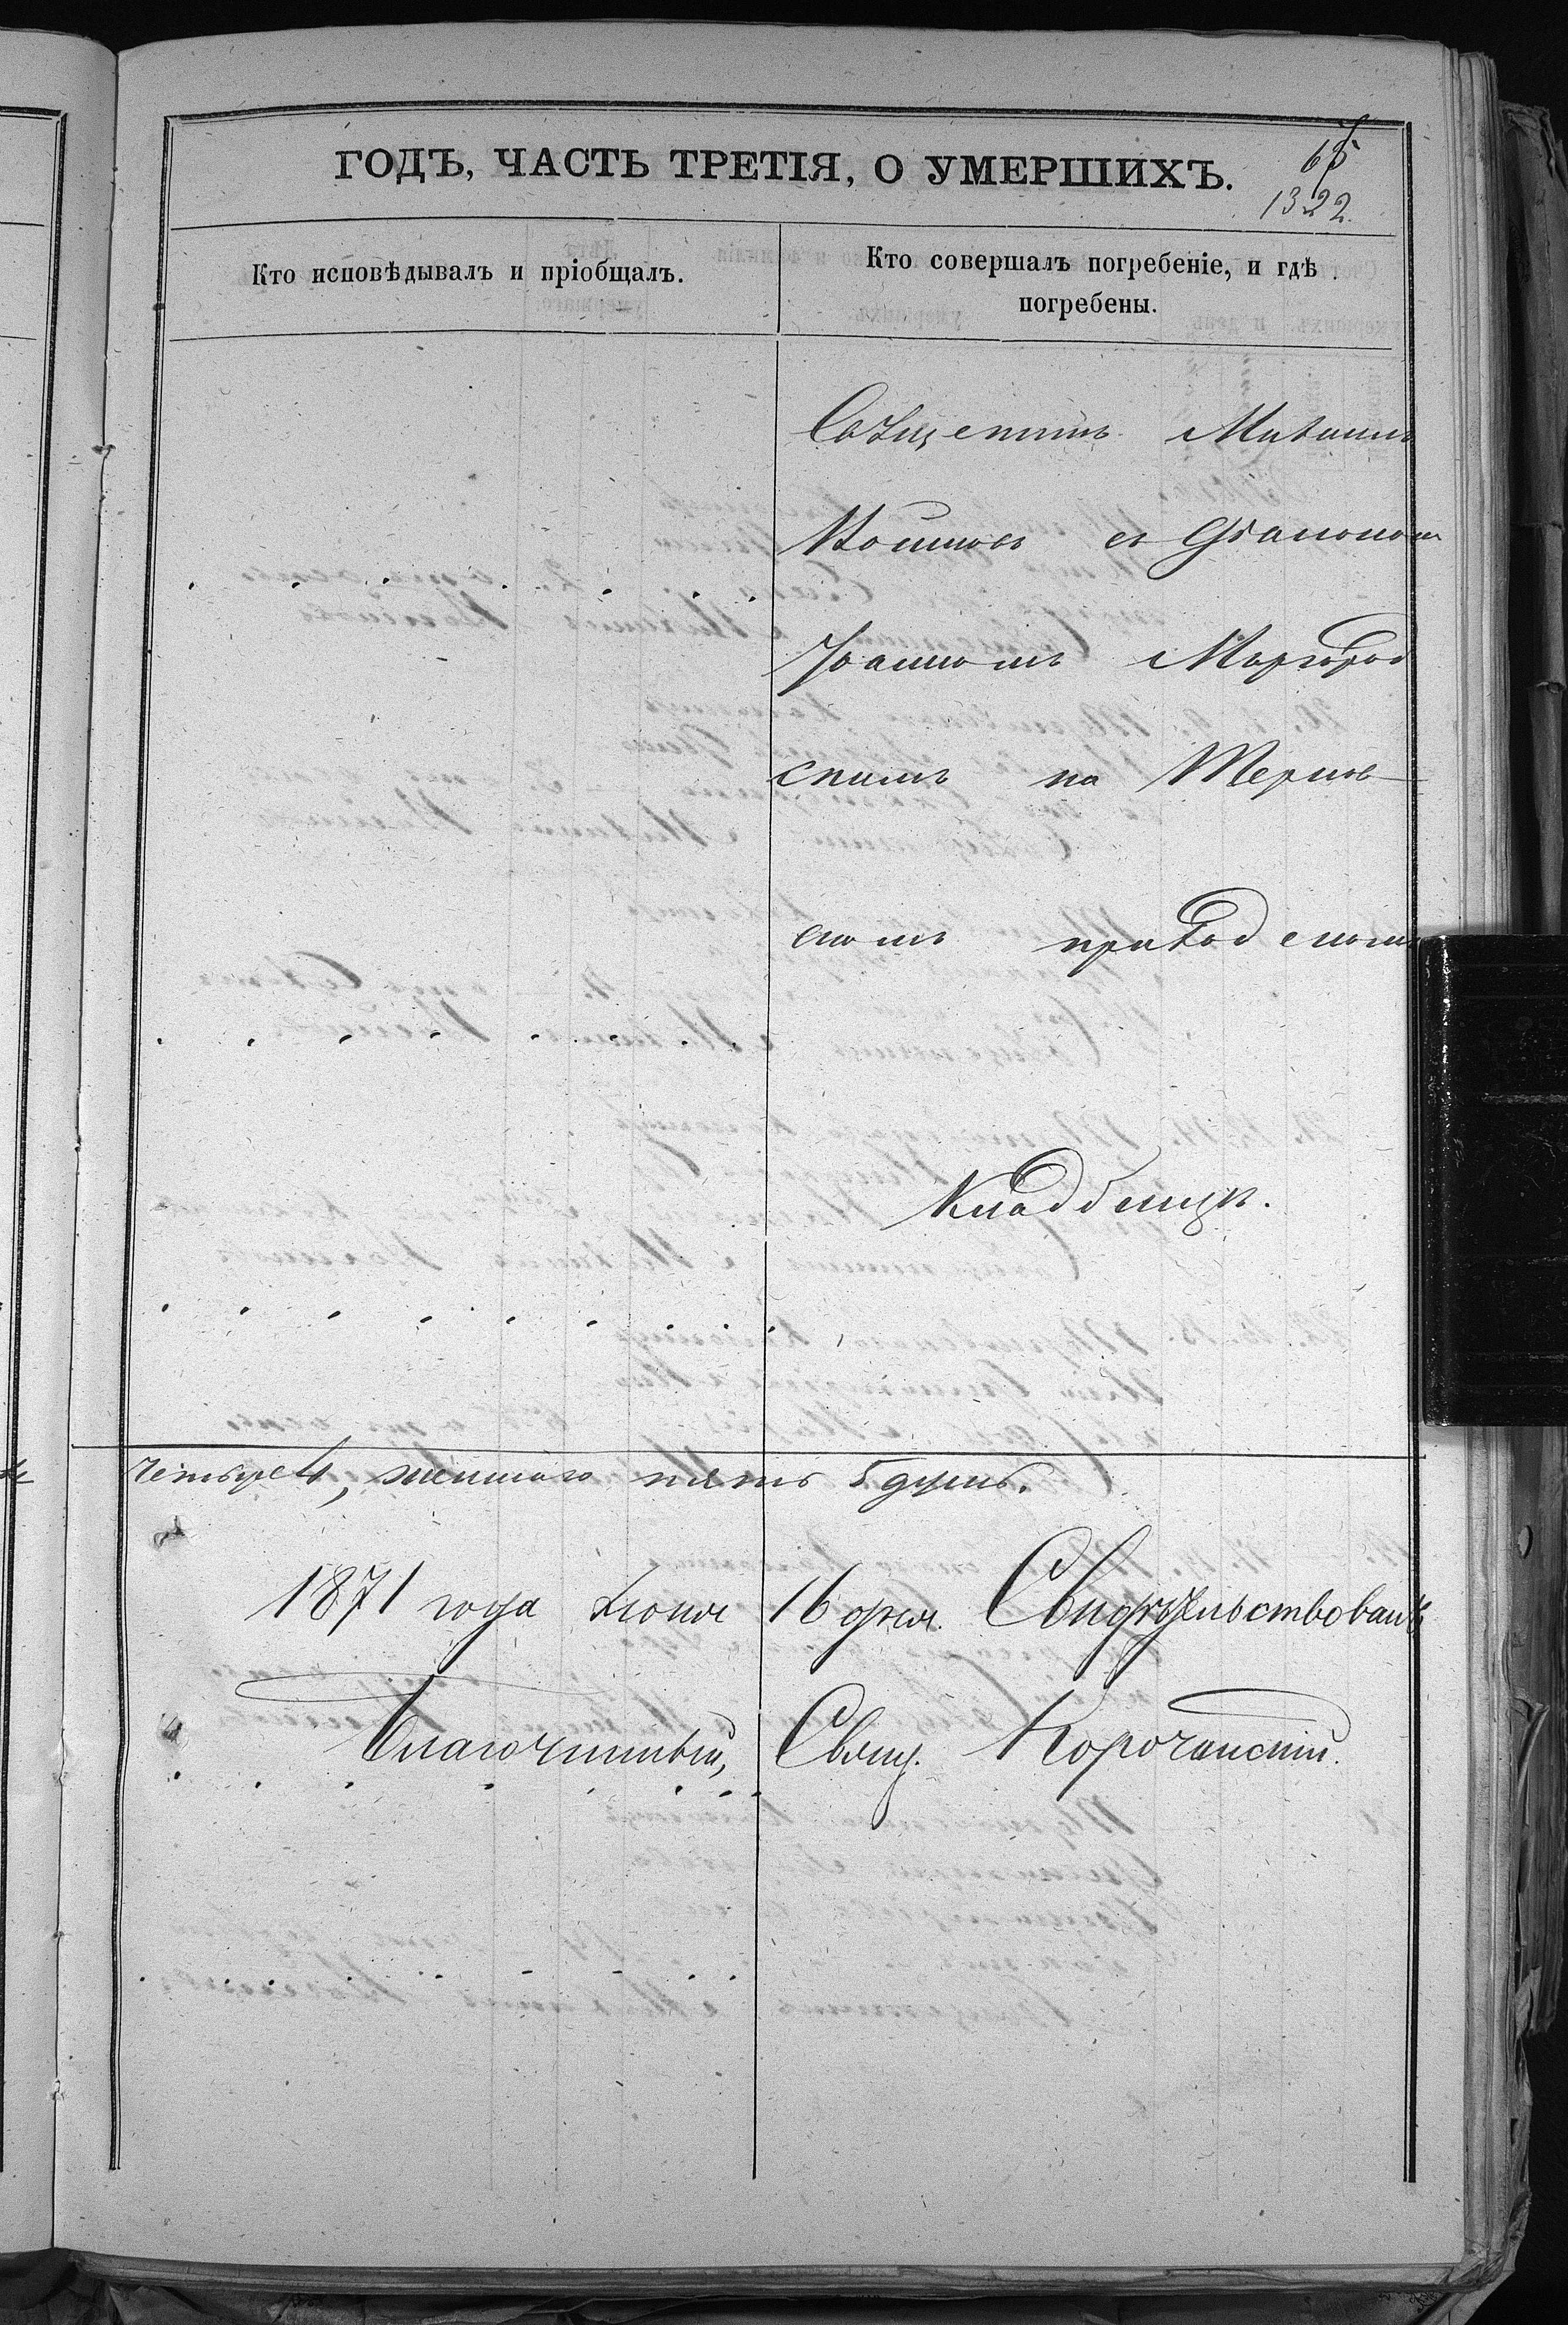 ГОДЪ, ЧАСТЬ ТРЕТІЯ, О УМЕРШИХЪ.
65
1322.
Кто исповѣдывалъ и пріобщалъ.
Кто совершалъ погребеніе, и гдѣ
погребены.
Свѧщенникъ Михаилъ
съ Діакономъ
Іоанномъ Миргород
скимъ на Тернов
скомъ приходскомъ
Кладбищѣ.
Четыре 4, женскаго пять 5 душъ.
1871 года Іюня 16 дня. Свидѣтельствовалъ
Благочинный, Свящ. Корочанскій.